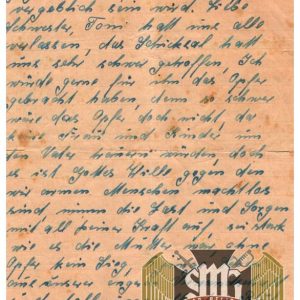 vergeblich sein wird. Liebe
Schwester, Toni hatt uns alle
verlassen, das Schicksal hatt
uns sehr schwer getroffen. Ich
würde gerne für ihn das Opfer
gebracht haben, denn so schwer
wäre das Opfer doch nicht, da
keine Frau und Kinder um
den Vater trauern würden, doch
es ist Gottes Wille gegen den
wir armen Menschen machtlos
sind, nimm die Last und Sorgen
mit all deiner Kraft auf, sei stark
wie es die Mutter war ohne
Opfer kein Sieg,
aus unserer enger